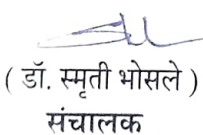 ( डॉ. स्मृती भोसले )
संचालक